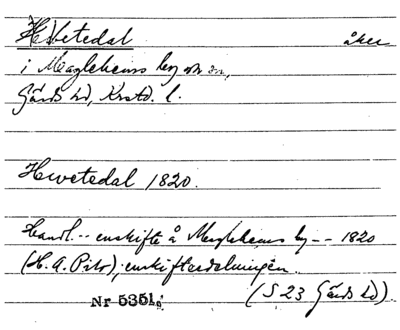 Hvetedal åker
i Maglehems by och sn,
Gärds hd, Krstd. l.
Hwetedal 1820.
Handl. -- enskifte å Maglehems by -- 1820
(H. A. Pihr); enskiftesdelningen.
Nr 5351. (S 23 Gärds hd)